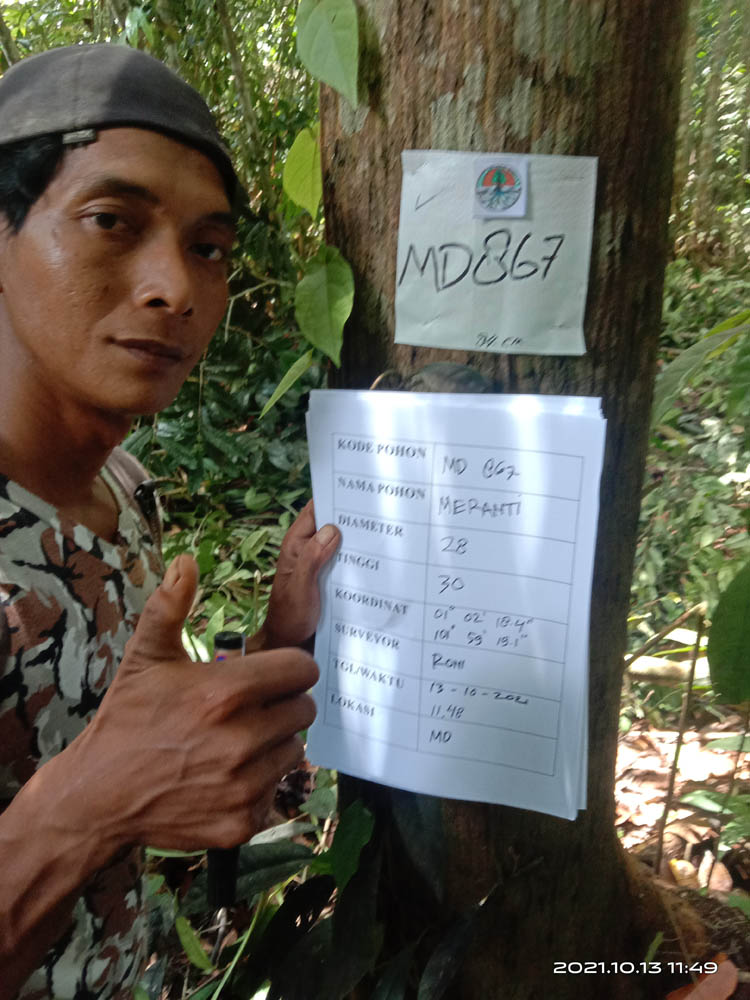 MD867
84 cm
KODE POHON MD 867
NAMA POHON MERANTI
DIAMETER 28
TINGGI 30
KOORDINAT 01° 02' 18.4"
101° 59' 13.1"
SURVEYOR RONI
TGL/WAKTU 13-10-2021
11.48
LOKASI MD
2021.10.13 11:49